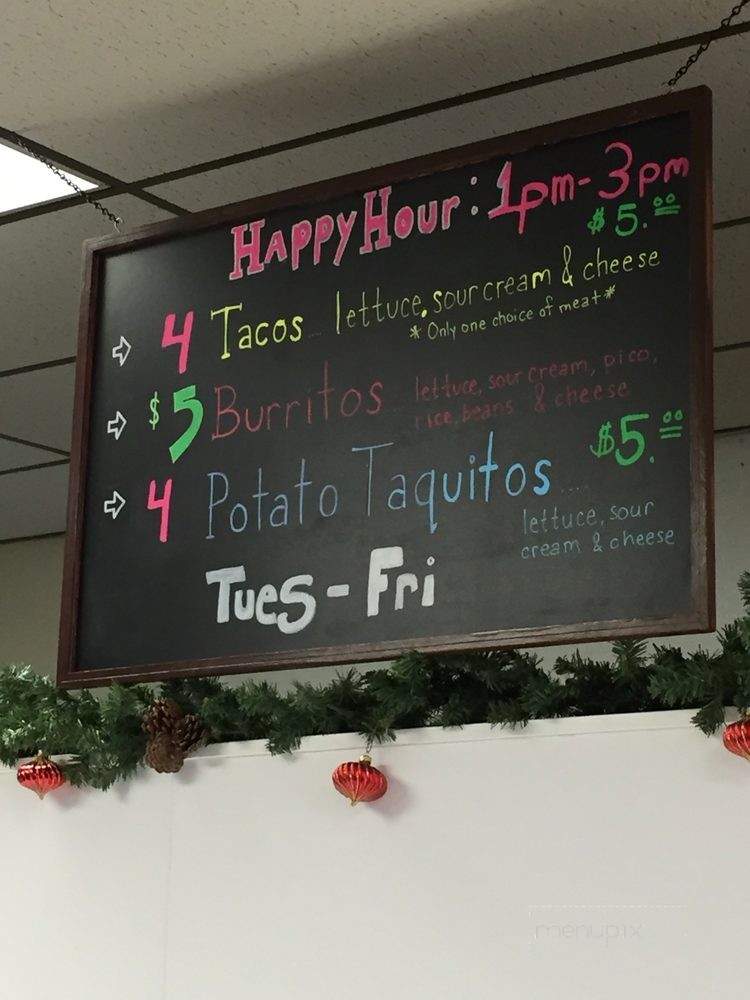 Happy Hour: 1pm-3pm
$5.00
4 Tacos... lettuce, sour cream & cheese
*Only one choice of meat*
$5 Burritos lettuce, sour cream, pico,
rice, beans & cheese
4 Potato Taquitos.... $5.00
lettuce, sour
cream & cheese
Tues - Fri
menupix